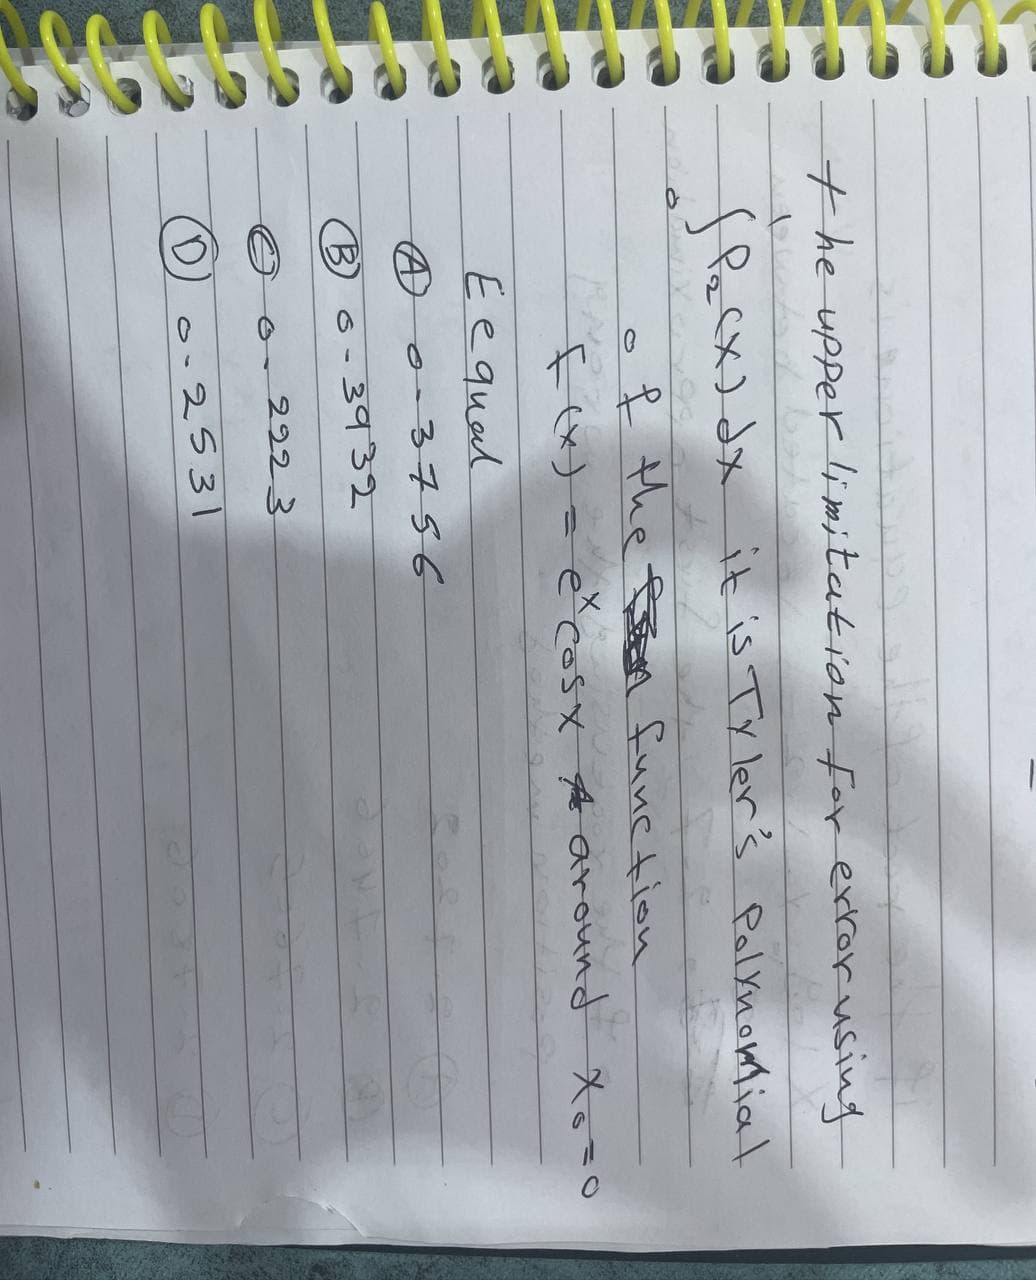 the upper limitation for error using
1
∫ P₂(x) dx it is Tyler's Polynomial
0
of the function
F(x) = eˣ cosx around x₀=0
Eequal
Ⓐ 0-3756
Ⓑ 0-3932
Ⓒ 0.2223
Ⓓ 0-2531